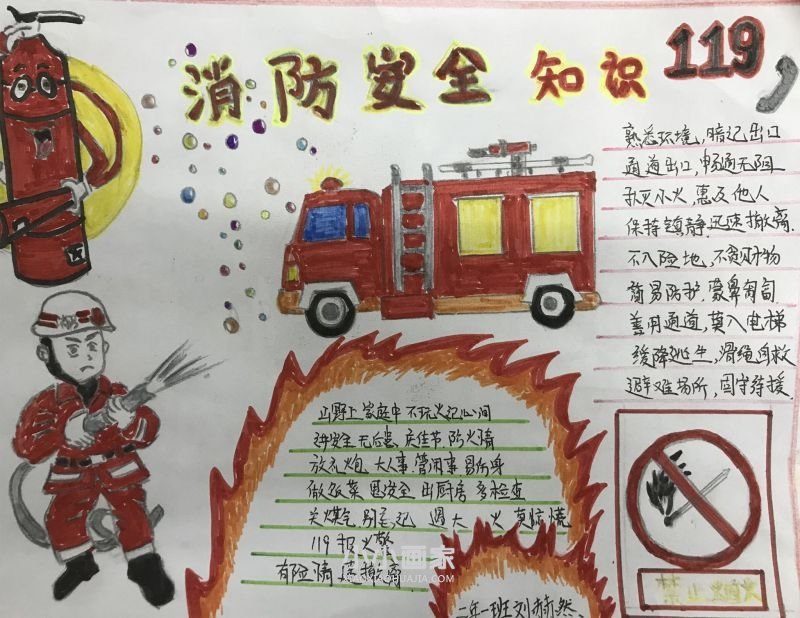 消防安全知识119
熟悉环境，暗记出口
通道出口，畅通无阻
扑灭小火 惠及他人
保持镇静 迅速撤离
不入险地，不贪财物
简易防护，蒙鼻匍匐
善用通道，莫入电梯
缓降逃生，滑绳自救
避难场所，固守待援
山野上 家庭中 不玩火 记心间
安全 无后患 庆佳节 防火情
放礼炮 大人事 管闲事 易伤身
做饭菜 要安全 出厨房 多检查
关煤气 别忘记 遇大火 莫惊慌
119 报火警
有险情 速撤离
二年一班 刘赫然
禁止烟火
小小画家
XIAOXIAOHUAJIA.COM